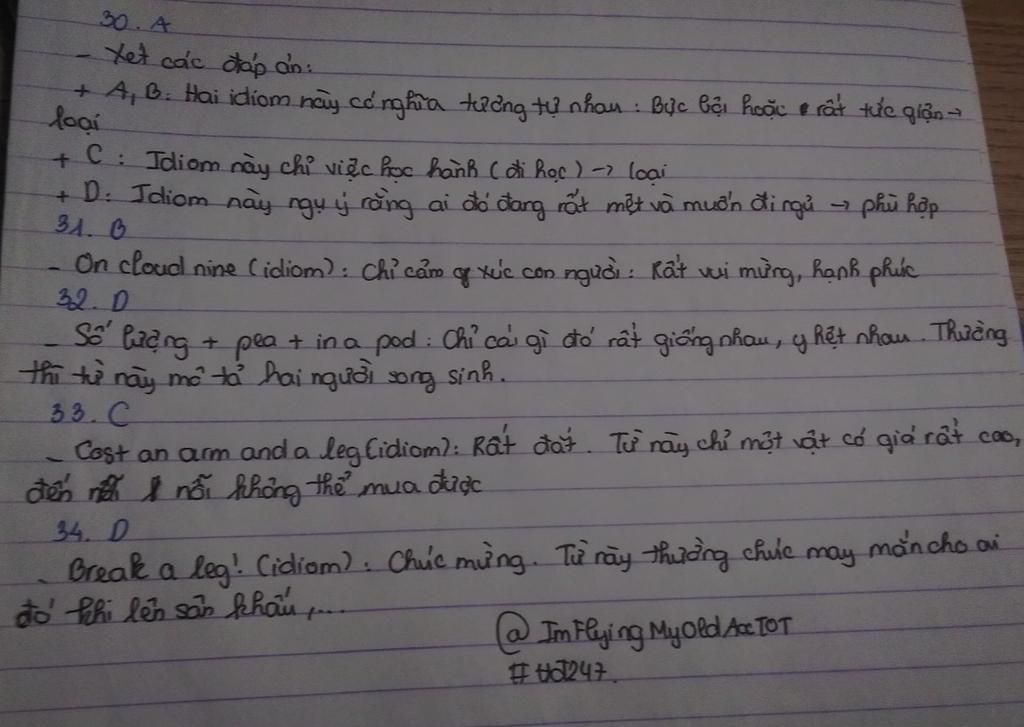 30. A
- Xét các đáp án:
+ A, B: Hai idiom này có nghĩa tương tự nhau: Bực bội hoặc rất tức giận →
loại
+ C: Idiom này chỉ việc học hành (đi học) → loại
+ D: Idiom này ngụ ý rằng ai đó đang rất mệt và muốn đi ngủ → phù hợp
31. B
- On cloud nine (idiom): Chỉ cảm xúc con người: Rất vui mừng, hạnh phúc
32. D
- Số lượng + pea + in a pod: Chỉ cái gì đó rất giống nhau, y hệt nhau. Thường
thì từ này mô tả hai người song sinh.
33. C
- Cost an arm and a leg (idiom): Rất đắt. Từ này chỉ một vật có giá rất cao,
đến nỗi không thể mua được
34. D
- Break a leg! (idiom): Chúc mừng. Từ này thường chúc may mắn cho ai
đó khi lên sân khấu,...
@ImFlyingMyOldAccTOT